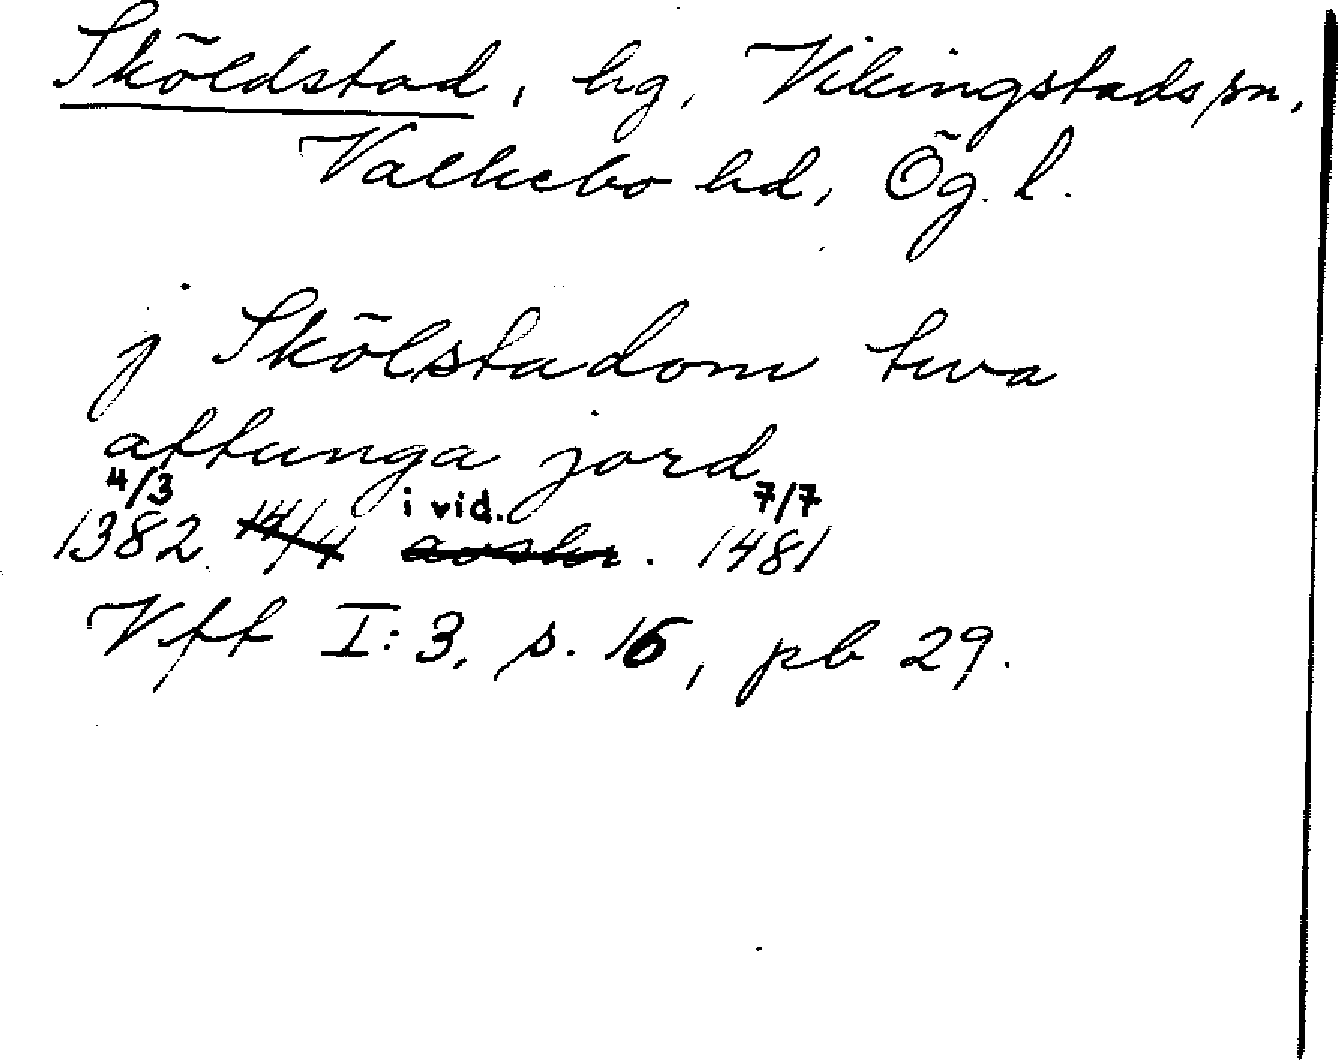 Sköldstad, hg, Vikingstads sn,
Valkebo hd, Ög. l.
j Skölstadom twa
attunga jord
4/3 i vid. 7/7
1382 14/4 avskr. 1481
Vff I:3, s. 16, pb 29.